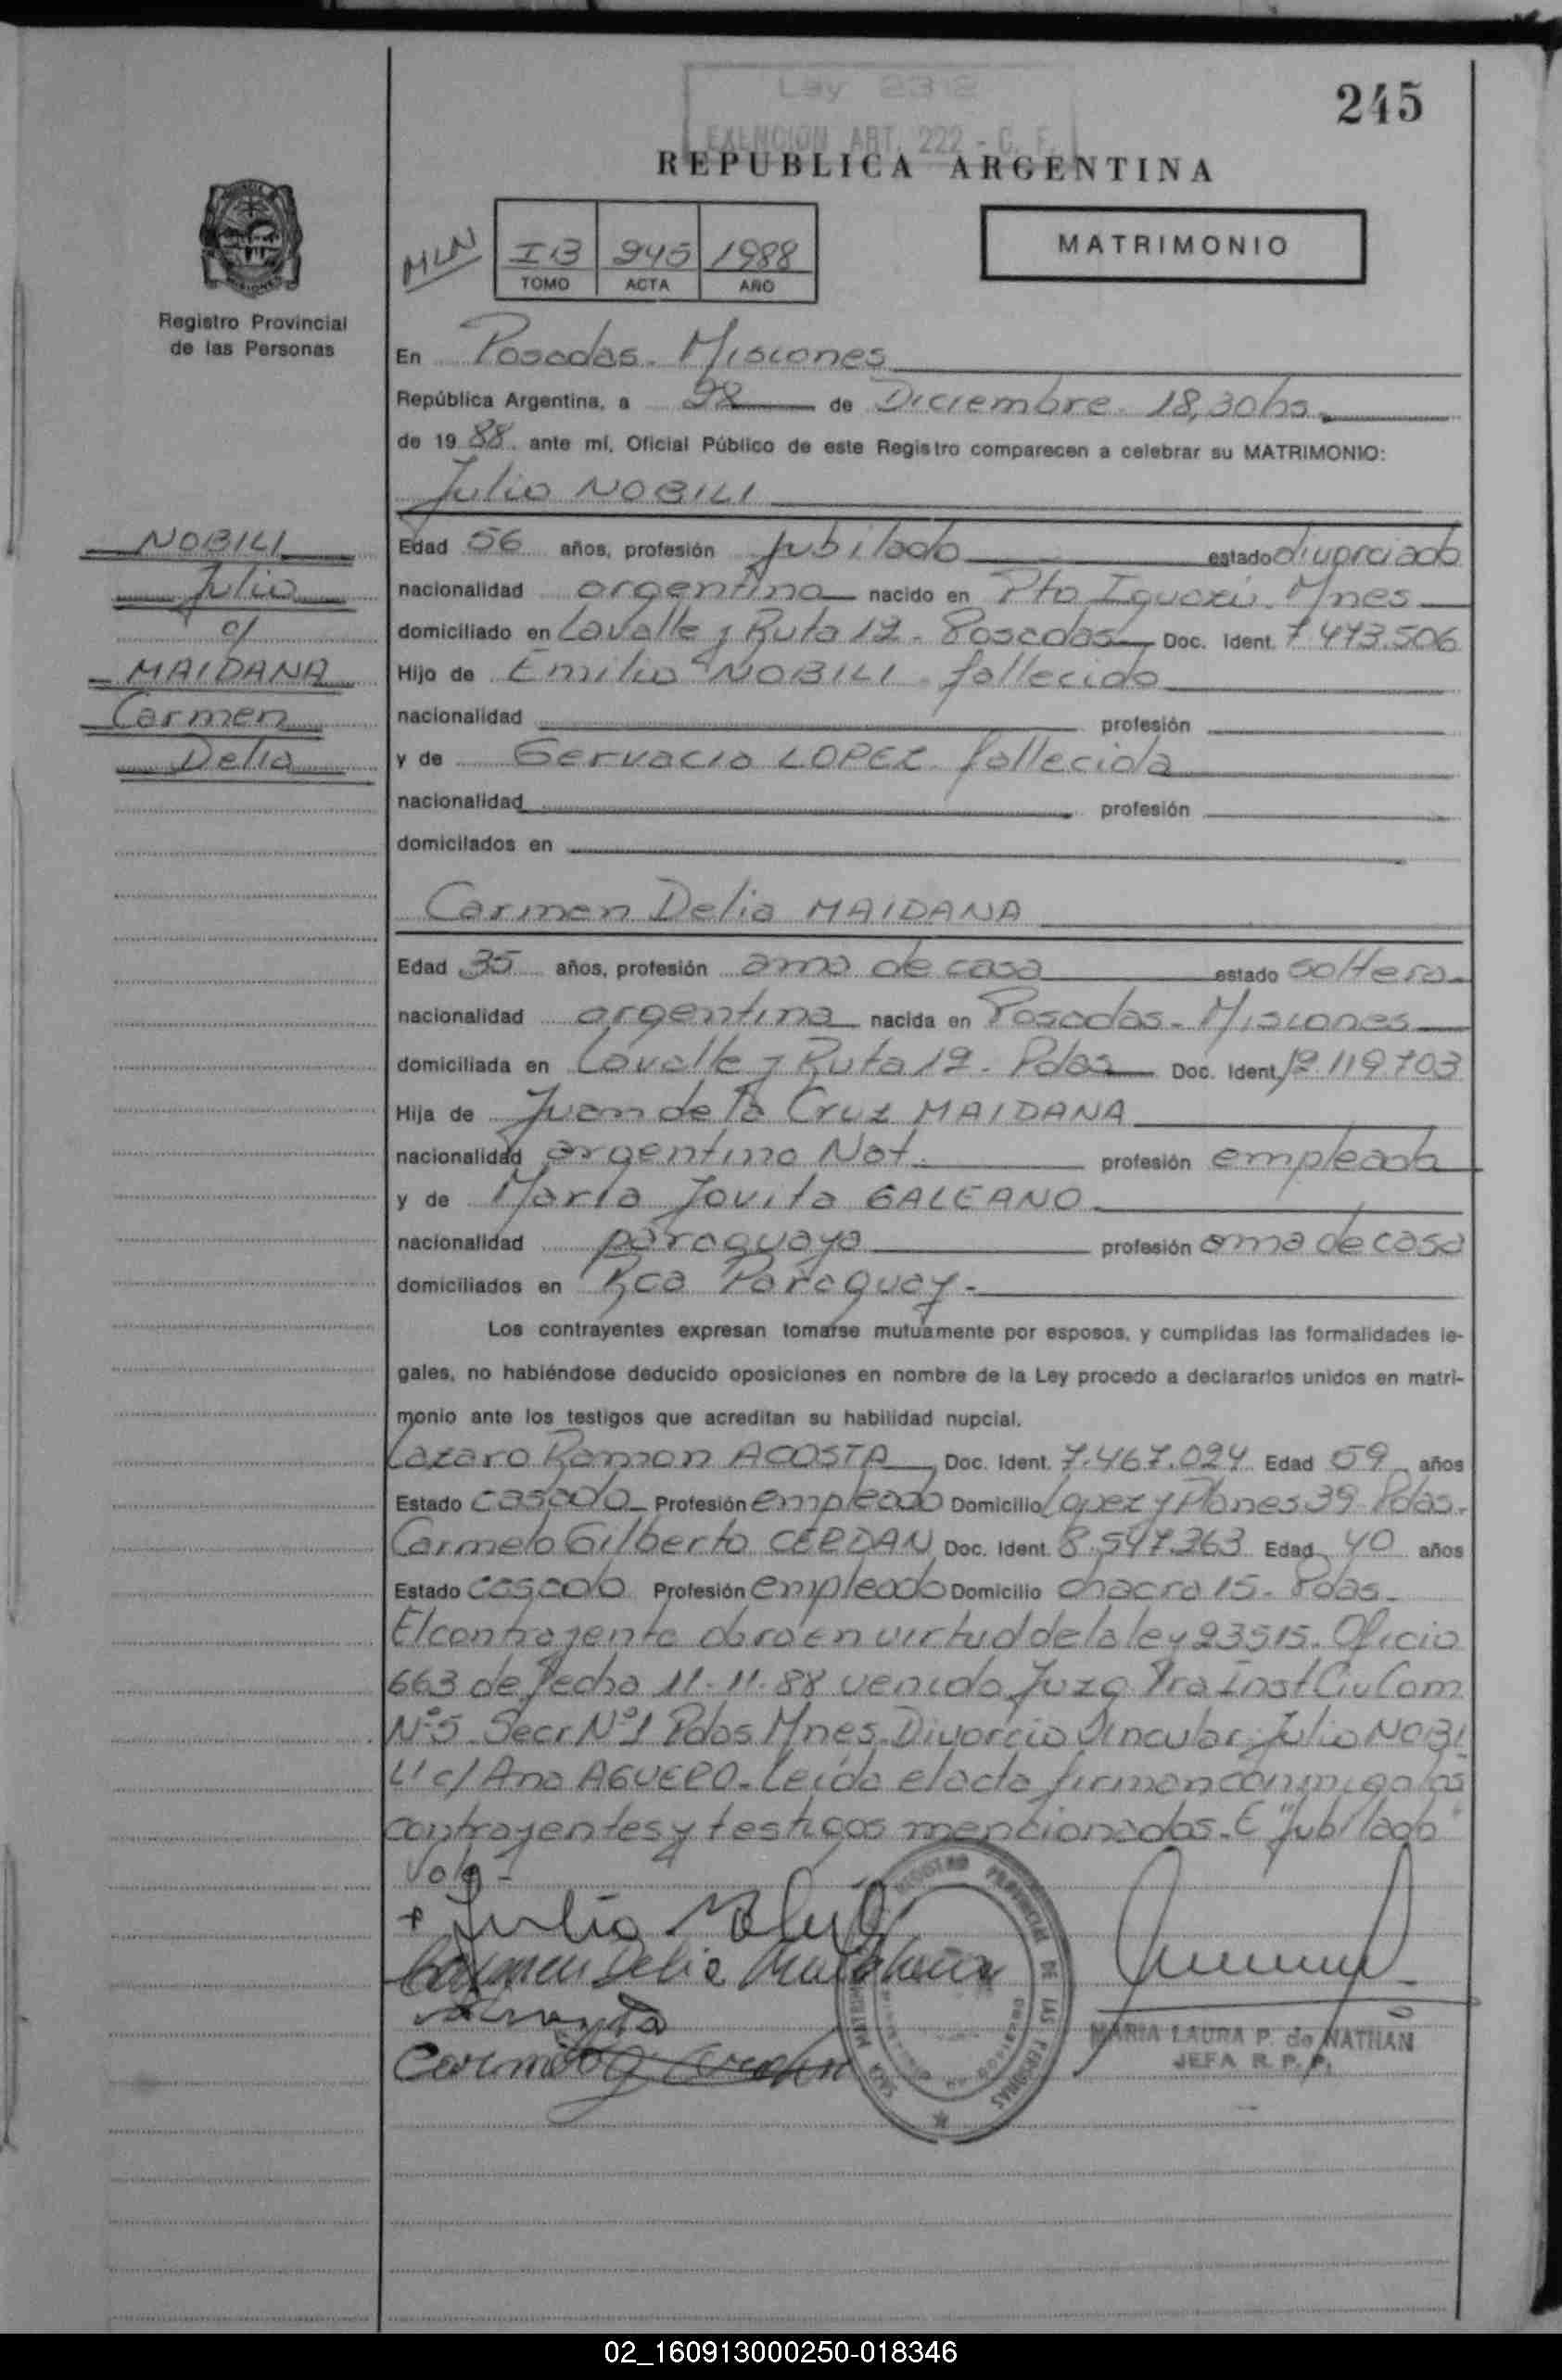 245
Ley 2312
EXENCION ART. 222 - C. F.
REPUBLICA ARGENTINA
MLN
IB 245 1988
TOMO ACTA AÑO
MATRIMONIO
Registro Provincial
de las Personas
En Posadas - Misiones
República Argentina, a 28 de Diciembre - 18,30 hs.
de 1988 ante mí, Oficial Público de este Registro comparecen a celebrar su MATRIMONIO:
Julio NOBILI
NOBILI
Julio
c/
MAIDANA
Carmen
Delia
Edad 56 años, profesión jubilado estado divorciado
nacionalidad argentina nacido en Pto Iguazú - Mnes
domiciliado en Lavalle y Ruta 12 - Posadas Doc. Ident. 7.473.506
Hijo de Emilio NOBILI - fallecido
nacionalidad profesión
y de Gervacia LOPEZ - fallecida
nacionalidad profesión
domicilados en
Carmen Delia MAIDANA
Edad 35 años, profesión ama de casa estado soltera
nacionalidad argentina nacida en Posadas - Misiones
domiciliada en Lavalle y Ruta 12 - Pdas Doc. Ident. 12.119.703
Hija de Juan de la Cruz MAIDANA
nacionalidad argentino Nat. profesión empleado
y de María Jovita GALEANO
nacionalidad paraguaya profesión ama de casa
domiciliados en Rca Paraguay -
Los contrayentes expresan tomarse mutuamente por esposos, y cumplidas las formalidades le-
gales, no habiéndose deducido oposiciones en nombre de la Ley procedo a declararlos unidos en matri-
monio ante los testigos que acreditan su habilidad nupcial.
Lazaro Ramon ACOSTA Doc. Ident. 7.467.024 Edad 59 años
Estado casado Profesión empleado Domicilio Lopez y Planes 39 - Pdas.
Carmelo Gilberto CERDAN Doc. Ident. 8.547.363 Edad 40 años
Estado casado Profesión empleado Domicilio chacra 15 - Pdas.
El contrayente obra en virtud de la ley 23515. Oficio
663 de fecha 11-11-88 venido Juzg Pra Inst Civ Com
Nº5 Secr Nº1 Pdas Mnes. Divorcio Vincular: Julio NOBI
LI c/ Ana AGUERO. Leída el acta firman conmigo los
contrayentes y testigos mencionados. E "jubilado"
Vale -
+ Julio Nobili
Carmen Delia Maidana
REGISTRO PROVINCIAL DE LAS PERSONAS
MARIA LAURA P. de NATHAN
JEFA R. P. P.
02_160913000250-018346